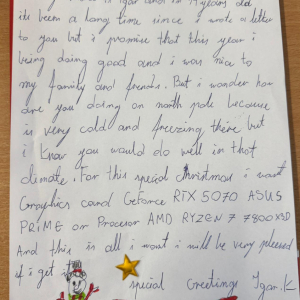 is Igar and im 14 years old
its been a long time since i wrote a letter
to you but i promise that this year i
being doing good and i was nice to
my family and friends. But i wonder how
are you doing on north pole because
is very cold and freezing there but
i know you would do well in that
climate. For this special christmas i want
Graphics card GeForce RTX 5070 ASUS
PRiME or Procesor AMD RYZEN 7 7800X3D
And this is all i want i will be very pleased
if i get it
special Greetings Igar.K